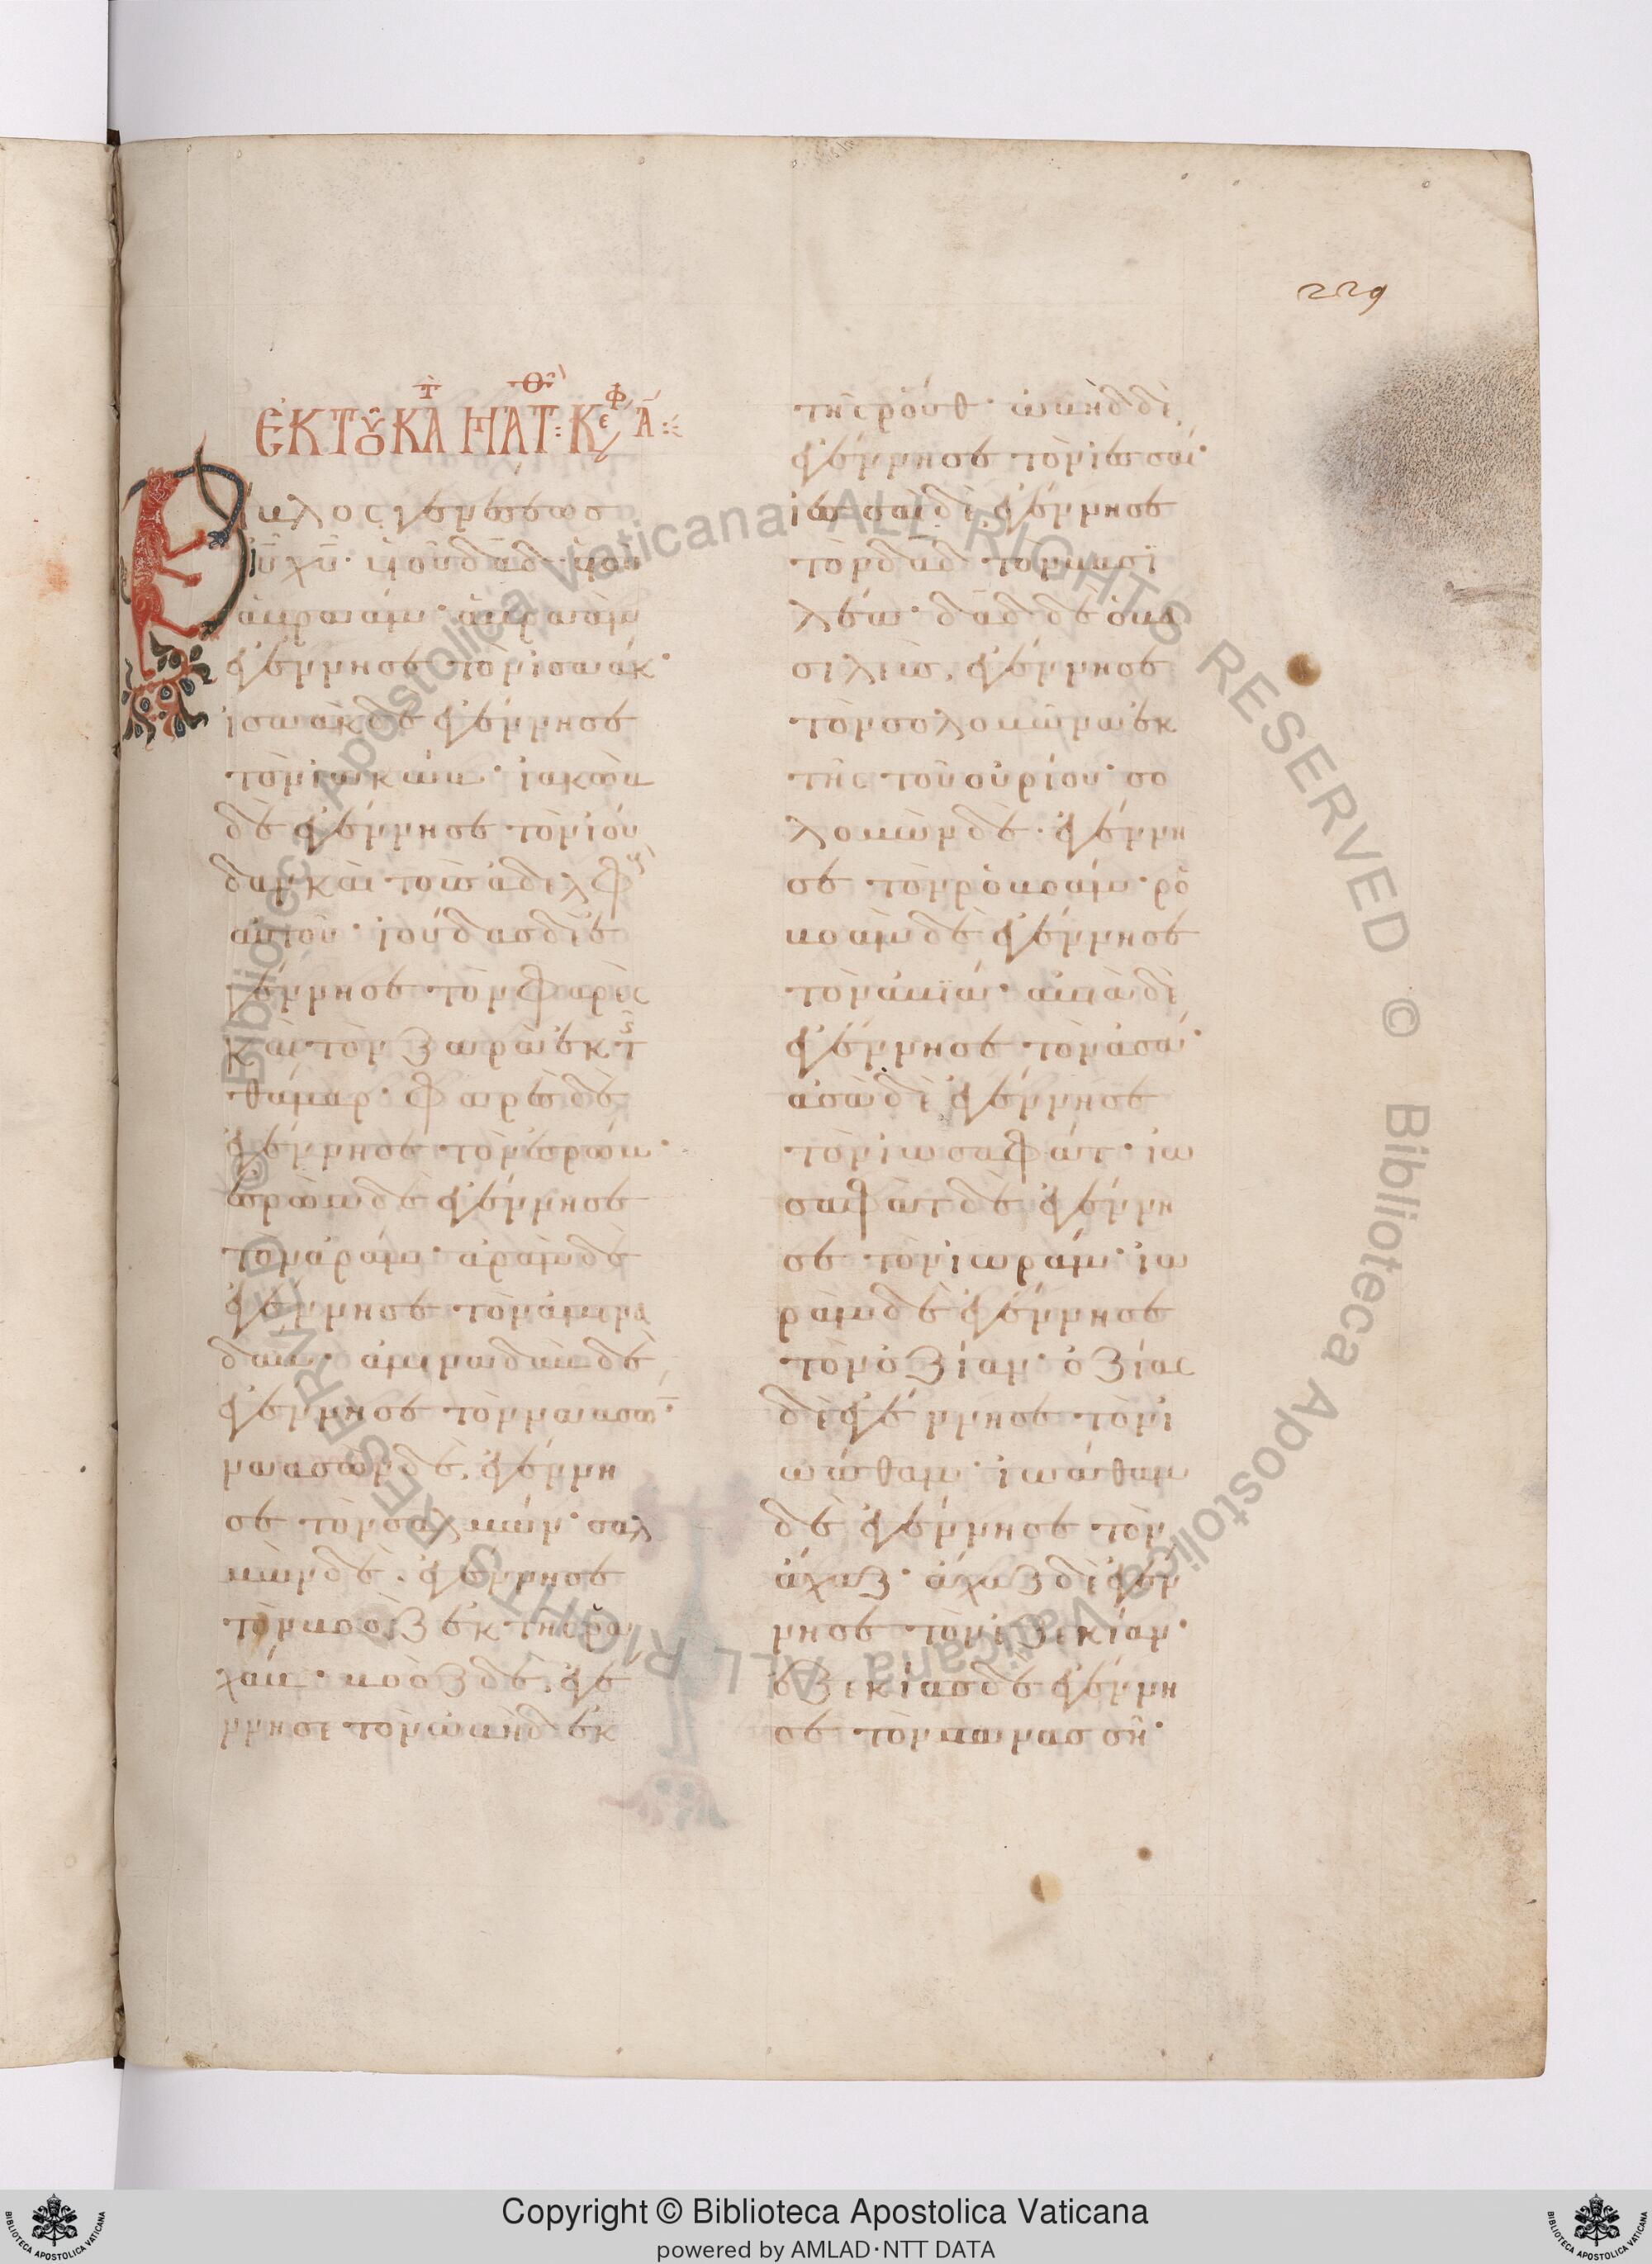 229
ἐκ τοῦ κατὰ ματθ: κεφ α:
Βίβλος γενέσεως
ιυ χυ· υἱοῦ δαδ· υἱοῦ
ἀβραάμ· ἀβραὰμ
ἐγέννησε τὸν ἰσαάκ·
ἰσαὰκ δὲ ἐγέννησε
τὸν ἰακώβ· ἰακὼβ
δὲ ἐγέννησε τὸν ἰού
δαν καὶ τοὺσ ἀδελφ
αὐτοῦ· ἰούδασ δὲ ἐ
γέννησε τὸν φαρὲς
καὶ τὸν ζαρὰ ἐκ τ
θάμαρ· φαρὲσ δὲ
ἐγέννησε τὸν ἐσρώμ·
ἐσρὼμ δὲ ἐγέννησε
τὸν ἀράμ· ἀρὰμ δὲ
ἐγέννησε τὸν ἀμινα
δάμ· ἀμιναδὰμ δὲ
ἐγέννησε τὸν ναασώ·
ναασὼν δὲ ἐγέννη
σε τὸν σαλμών· σαλ
μὼν δὲ ἐγέννησε
τὸν βοὸζ ἐκ τῆσ ῥα
χάβ· βοὸζ δὲ ἐγέ
ννησε τὸν ὠβὴδ ἐκ
τῆς ῥούθ· ὠβὴδ δὲ
ἐγέννησε τὸν ἰεσσαί·
ἰεσσαὶ δὲ ἐγέννησε
τὸν δαδ τὸν βασι
λέα· δαδ δὲ ὁ βα
σιλεὺσ ἐγέννησε
τὸν σολομῶνα ἐκ
τῆς τοῦ οὐρίου· σο
λομὼν δὲ ἐγέννη
σε τὸν ῥοβοάμ· ῥο
βοὰμ δὲ ἐγέννησε
τὸν ἀβιά· ἀβιὰ δὲ
ἐγέννησε τὸν ἀσά·
ἀσὰ δὲ ἐγέννησε
τὸν ἰωσαφάτ· ἰω
σαφὰτ δὲ ἐγέννη
σε τὸν ἰωράμ· ἰω
ρὰμ δὲ ἐγέννησε
τὸν ὀζίαν· ὀζίας
δὲ ἐγέννησε τὸν ἰ
ωάθαμ· ἰωάθαμ
δὲ ἐγέννησε τὸν
ἄχαζ· ἄχαζ δὲ ἐγέν
νησε τὸν ἐζεκίαν·
ἐζεκίασ δὲ ἐγέννη
σε τὸν μανασσῆ·
© Biblioteca Apostolica Vaticana ALL RIGHTS RESERVED © Biblioteca Apostolica Vaticana ALL RIGHTS RESERVED
Copyright © Biblioteca Apostolica Vaticana
powered by AMLAD·NTT DATA
BIBLIOTECA APOSTOLICA VATICANA
BIBLIOTECA APOSTOLICA VATICANA